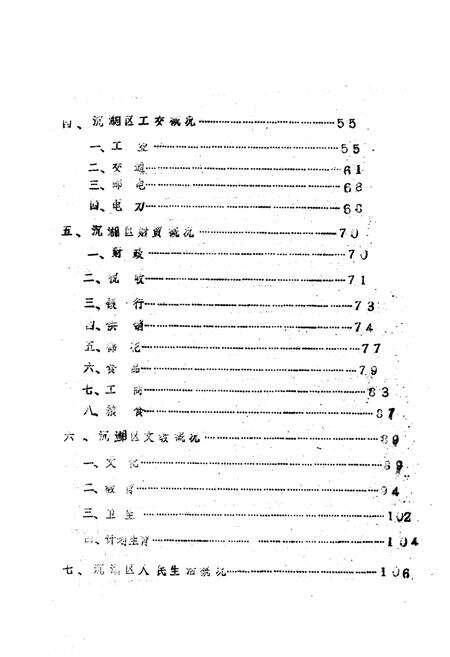 四、沉湖区工交概况………………55
一、工 业………………55
二、交 通………………61
三、邮 电………………68
四、电 力………………68
五、沉湖区财贸概况………………70
一、财 政………………70
二、税 收………………71
三、银 行………………73
四、供 销………………74
五、棉 花………………77
六、食 品………………79
七、工 商………………83
八、粮 食………………87
六、沉湖区文教概况………………89
一、文 化………………89
二、教 育………………94
三、卫 生………………102
四、计划生育………………104
七、沉湖区人民生活概况………………106